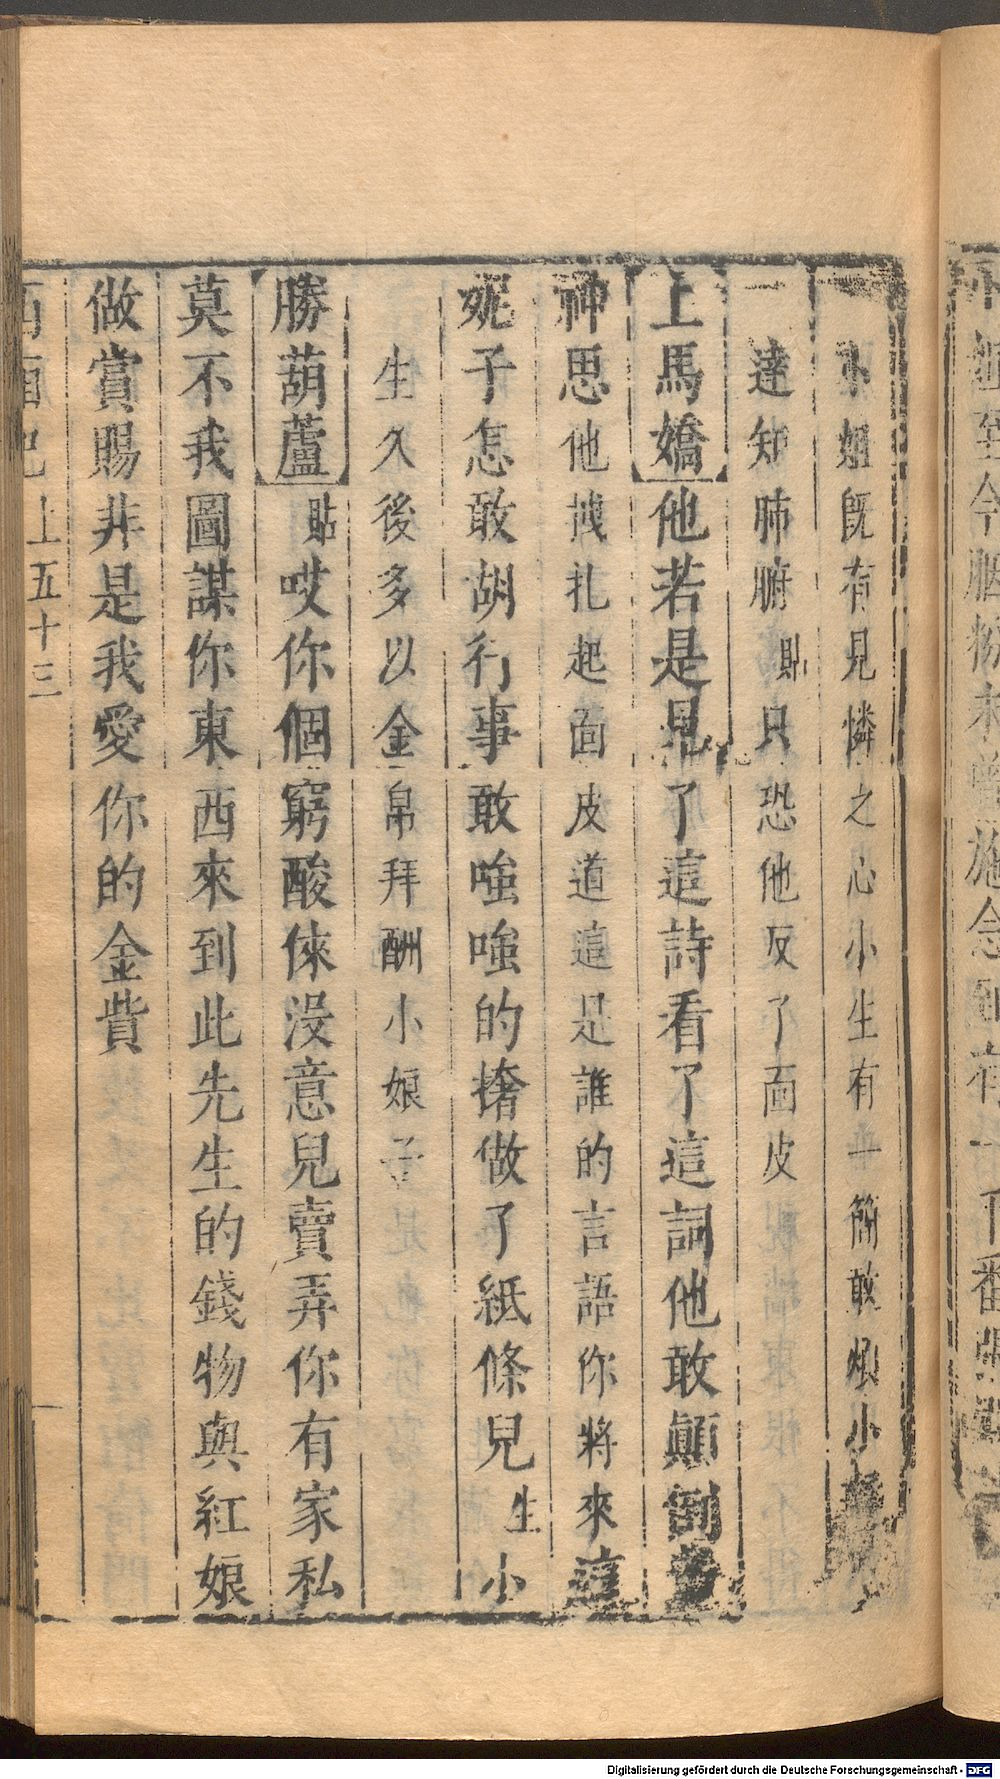 小姐旣有見憐之心小生有一簡敢煩小
達知肺腑貼只恐他反了面皮
上馬嬌他若是見了這詩看了這詞他敢顛倒費
神思他拽扎起面皮道這是誰的言語你將來這
妮子怎敢胡行事敢嗤嗤的撦做了紙條兒生小
生久後多以金帛拜酬小娘子
勝葫蘆貼哎你個窮酸倈沒意兒賣弄你有家私
莫不我圖謀你東西來到此先生的錢物與紅娘
做賞賜非是我愛你的金貲
西廂記上五十三
Digitalisierung gefördert durch die Deutsche Forschungsgemeinschaft - DFG